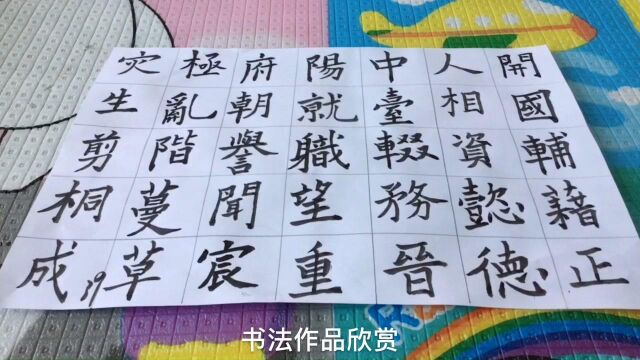 開國輔藉正
人相資懿德
中臺輟務晉
陽就職望重
府朝譽聞宸
極亂階蔓草
灾生剪桐成
19
书法作品欣赏